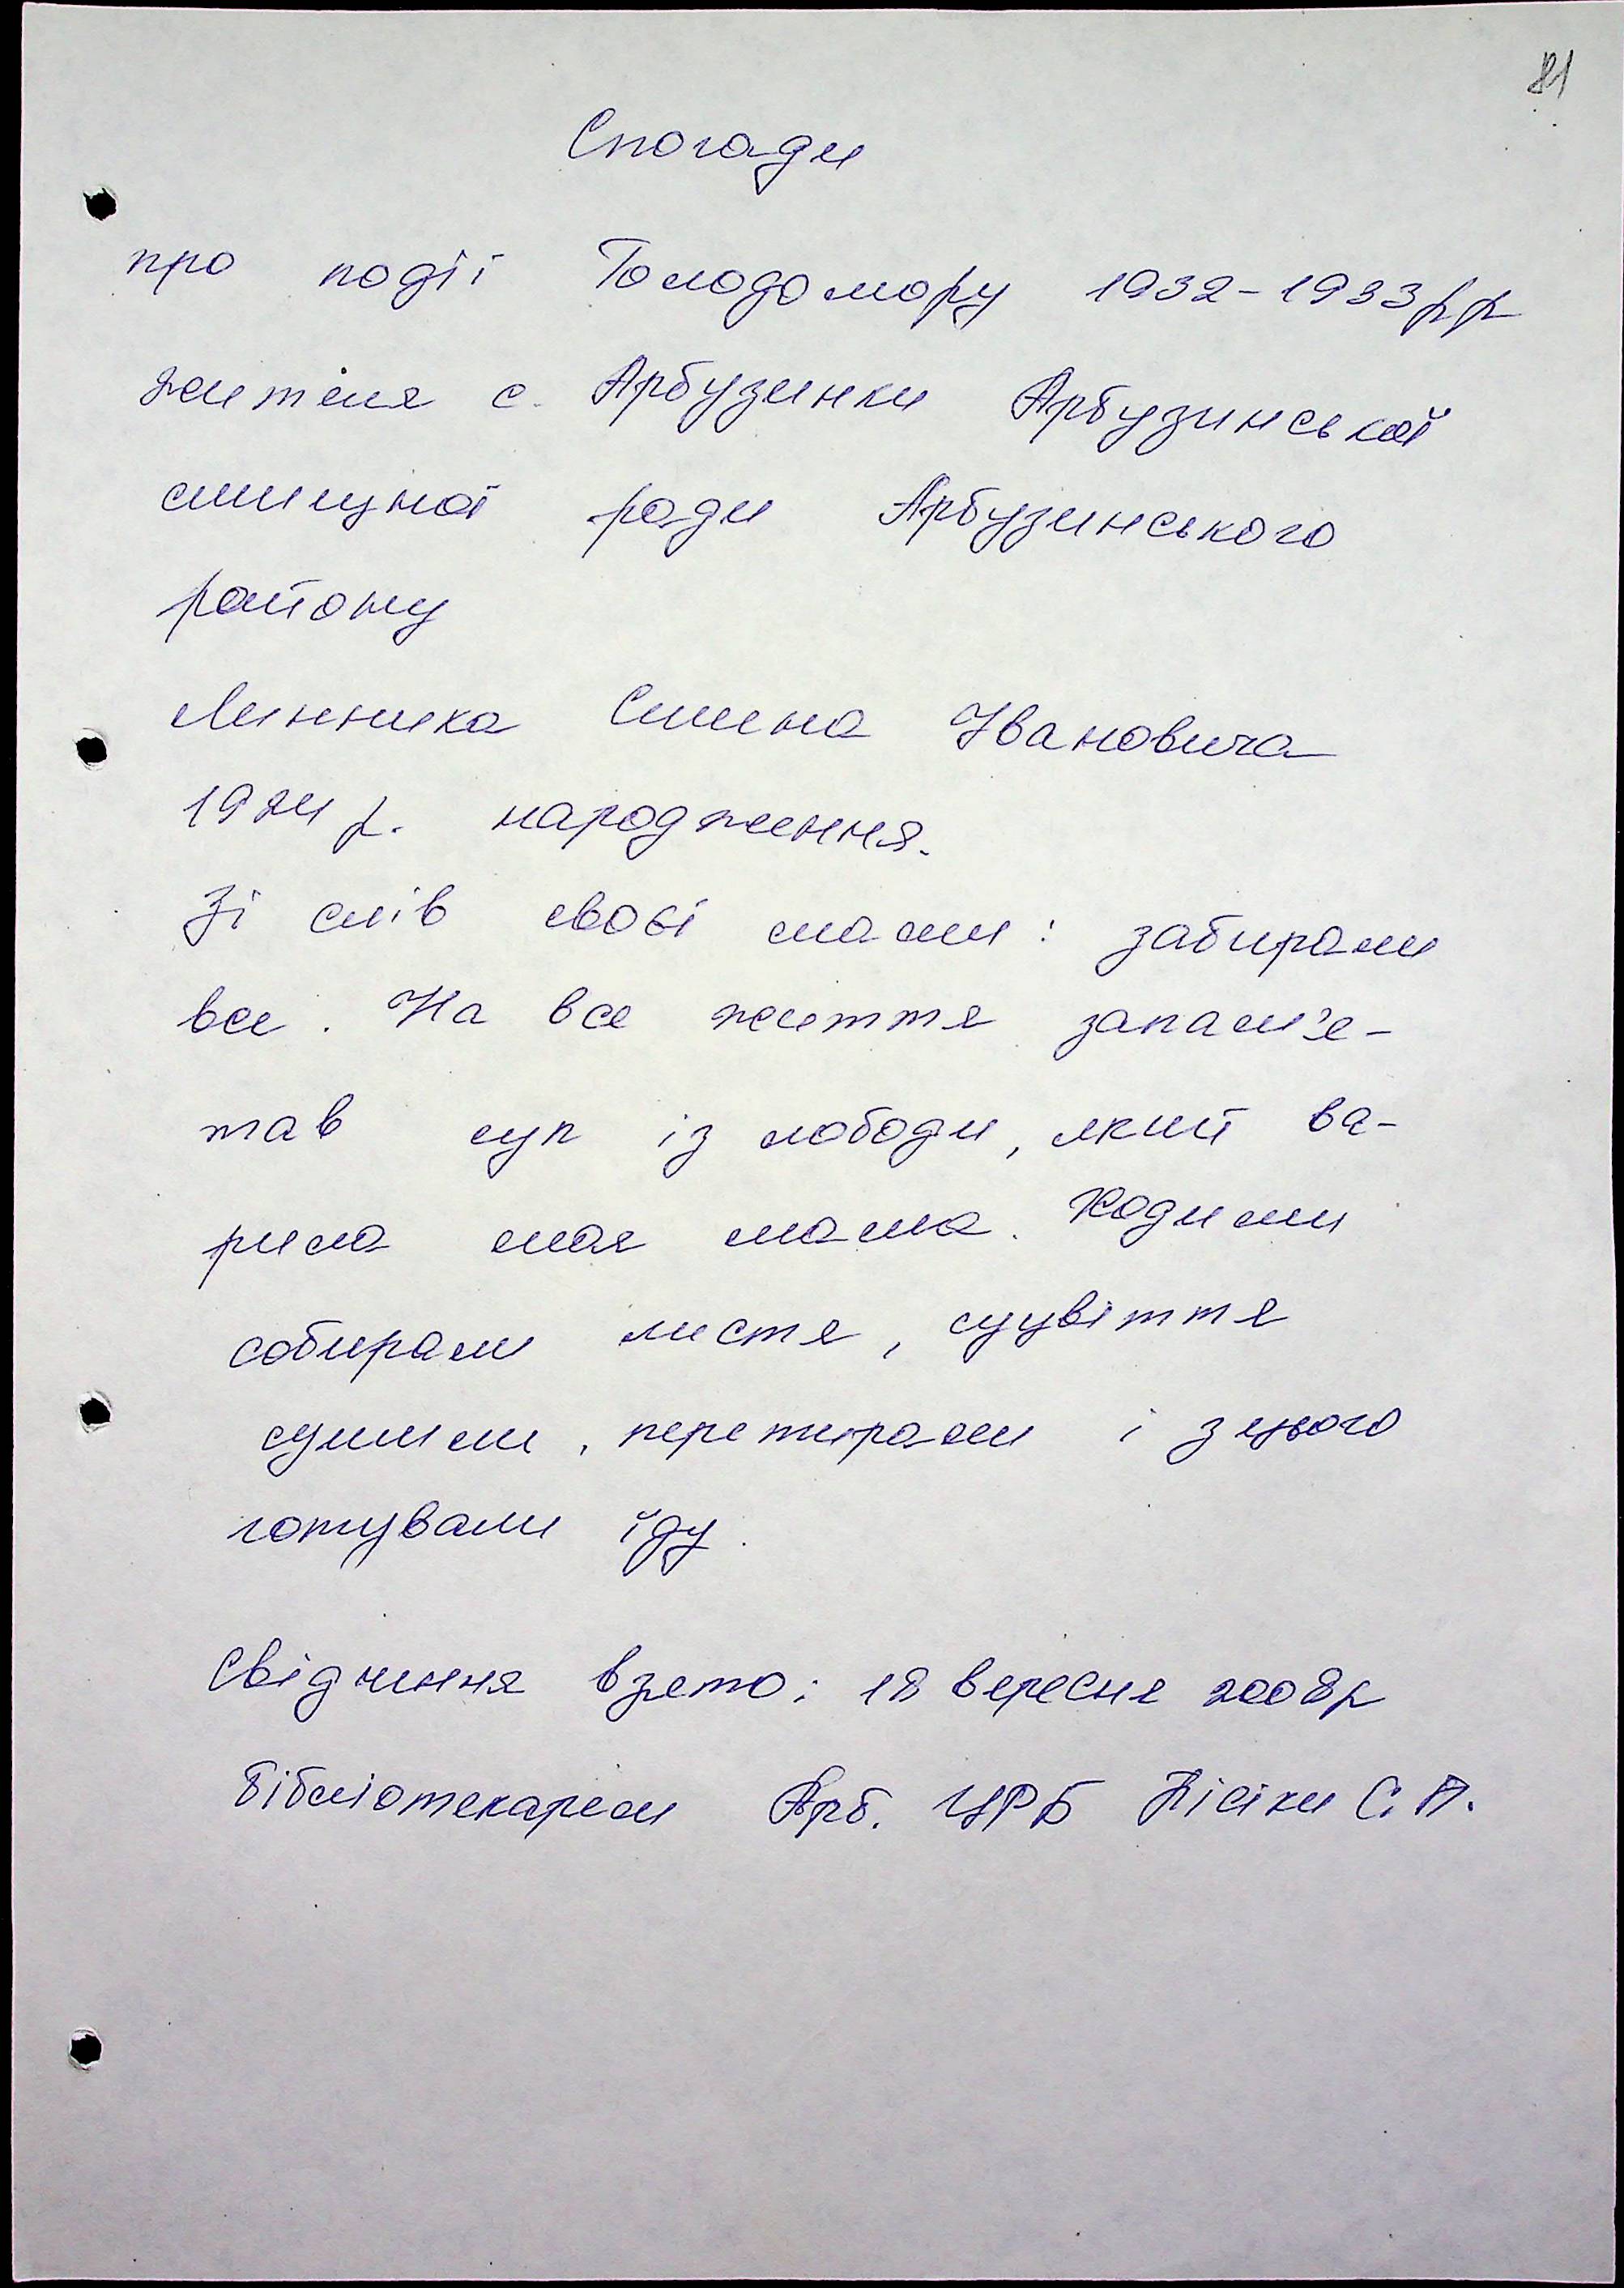 81
Спогади
про події Голодомору 1932-1933рр
жителя с. Арбузинки Арбузинської
селищної ради Арбузинського
району
Линника Семена Івановича
1924р. народження.
Зі слів своєї мами: забирали
все. На все життя запам'я-
тав суп із лободи, який ва-
рила моя мама. Ходили
собирали листя, суцвіття
сушили, перетирали і з цього
готували їду.
Свідчення взято: 18 вересня 2008р
бібліотекарем Арб. ЦРБ Лісіки С.П.